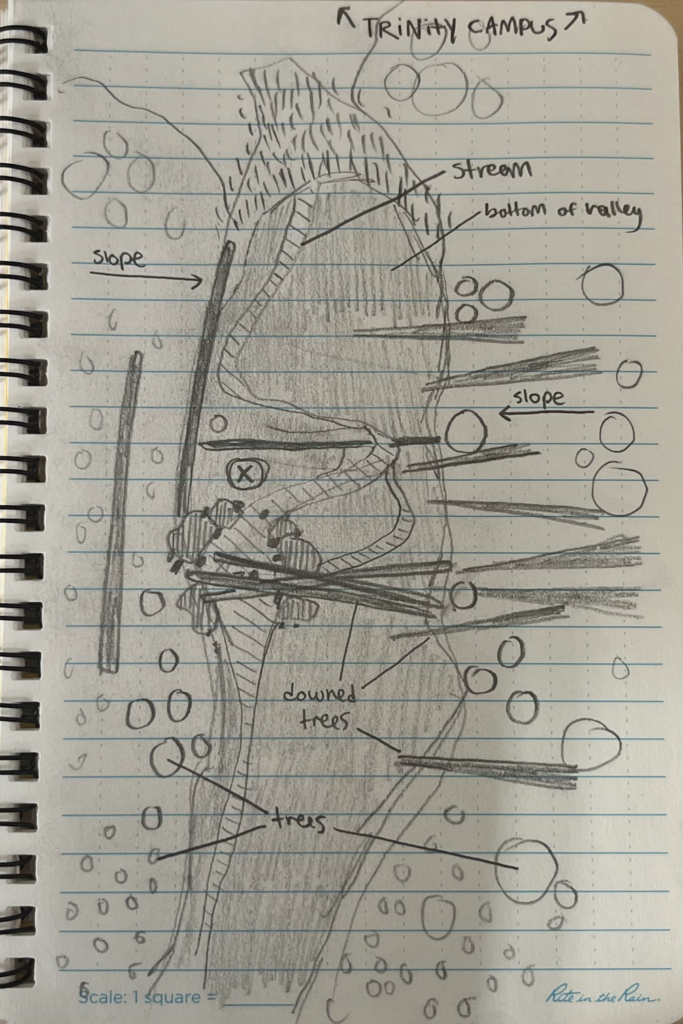 TRINITY CAMPUS
stream
bottom of valley
slope
slope
X
downed
trees
trees
Scale: 1 square =
Rite in the Rain.